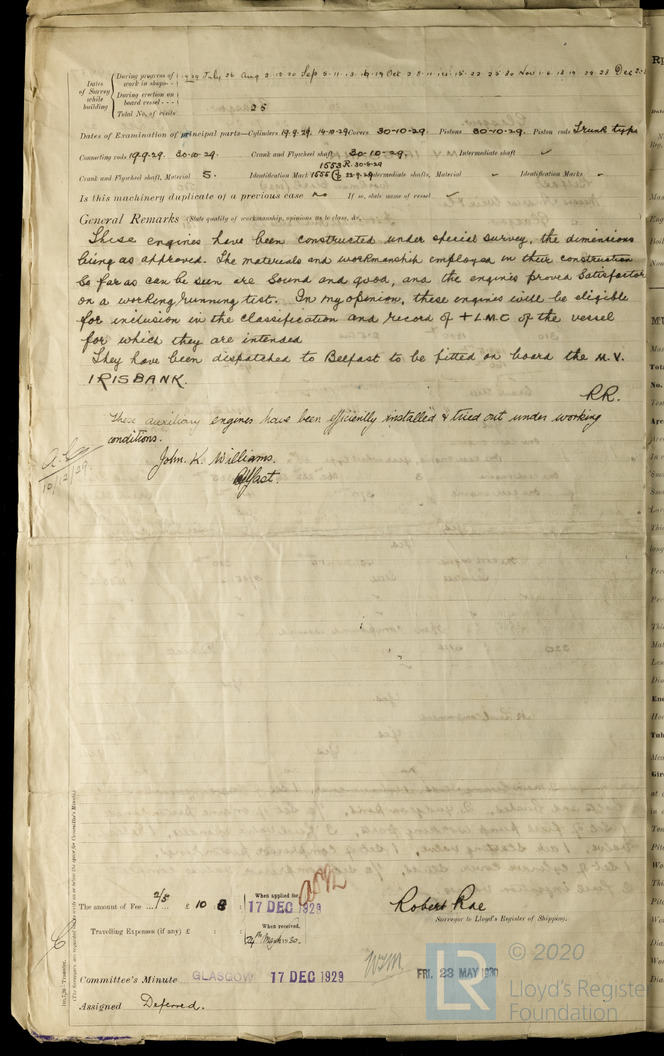 Dates of Survey while building
During progress of work in shops - - 1929 July 26 Aug 2. 12. 20 Sep 5. 11. 13. 19 Oct 2 8. 11. 15. 22 25 30 Nov 1. 6 13 19 23 Dec
During erection on board vessel - - -
Total No. of visits 25
Dates of Examination of principal parts—Cylinders 19.9.29. 14-10-29 Covers 30-10-29. Pistons 30-10-29. Piston rods Trunk type
Connecting rods 19.9.29. 30-10-29. Crank and Flywheel shaft 30-10-29. Intermediate shaft ✓
1553 R. 30-8-29
Crank and Flywheel shaft, Material S. Identification Mark 1555 22-9-29 Intermediate shafts, Material Identification Marks
Is this machinery duplicate of a previous case no If so, state name of vessel ✓
General Remarks (State quality of workmanship, opinions as to class, &c.
These engines have been constructed under special survey, the dimensions
being as approved. The materials and workmanship employed in their construction
so far as can be seen are sound and good, and the engines proved satisfactor
on a working running test. In my opinion, these engines will be eligible
for inclusion in the classification and record of + L.M.C of the vessel
for which they are intended
They have been dispatched to Belfast to be fitted on board the M.V.
IRISBANK.
RR.
These auxiliary engines have been efficiently installed & tried out under working
conditions.
John. K. Williams.
Belfast.
10/12/29.
The amount of Fee ... 2/5 £ 10 : 8 : When applied for, 17 DEC 1929
Robert Rae
Surveyor to Lloyd's Register of Shipping.
Travelling Expenses (if any) £ : : When received, 24th March 1930.
Committee's Minute GLASGOW 17 DEC 1929 FRI. 23 MAY 1930
Assigned Deferred.
(The Surveyors are requested not to write on or below the space for Committee's Minute.)
© 2020
LR Lloyd's Register
Foundation